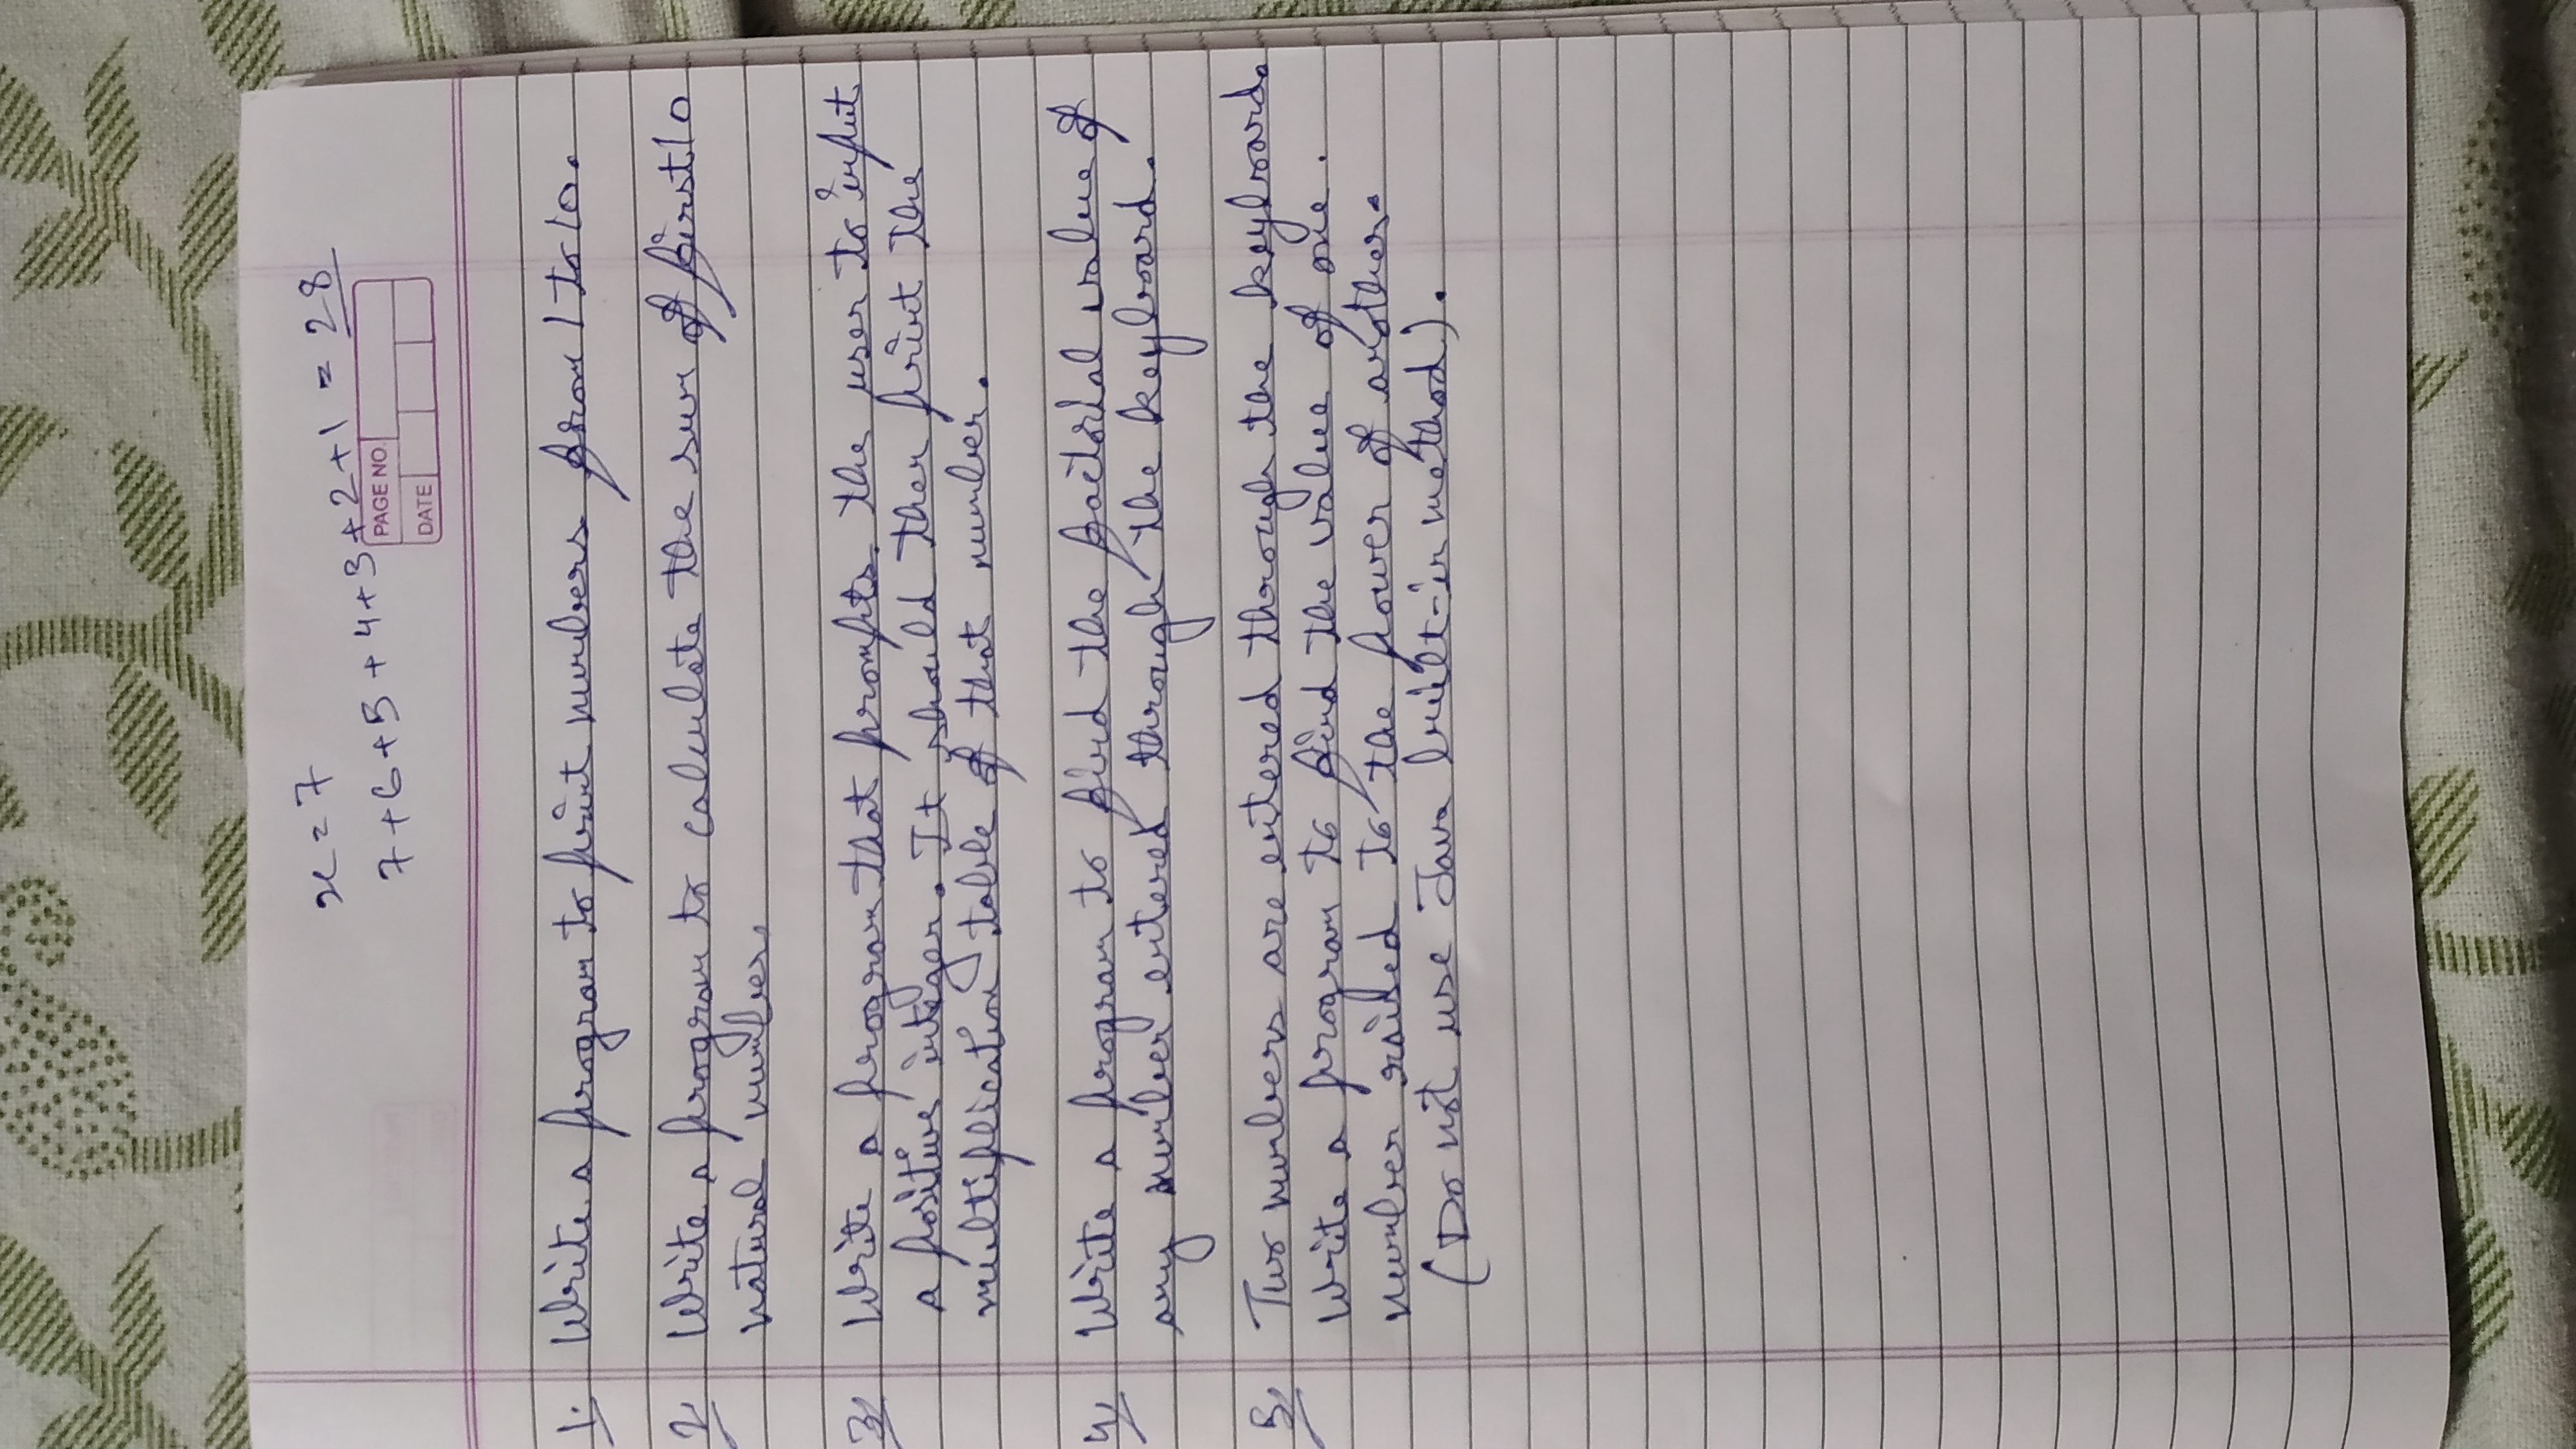 x = 7
7 + 6 + 5 + 4 + 3 + 2 + 1 = 28
PAGE NO.
DATE
1. Write a program to print numbers from 1 to 10.
2. Write a program to calculate the sum of first 10
natural number.
3. Write a program that prompts the user to input
a positive integer. It should then print the
multiplication table of that number.
4. Write a program to find the factorial value of
any number entered through the keyboard.
5. Two numbers are entered through the keyboard.
Write a program to find the value of one.
number raised to the power of another.
(Do not use Java built-in method).